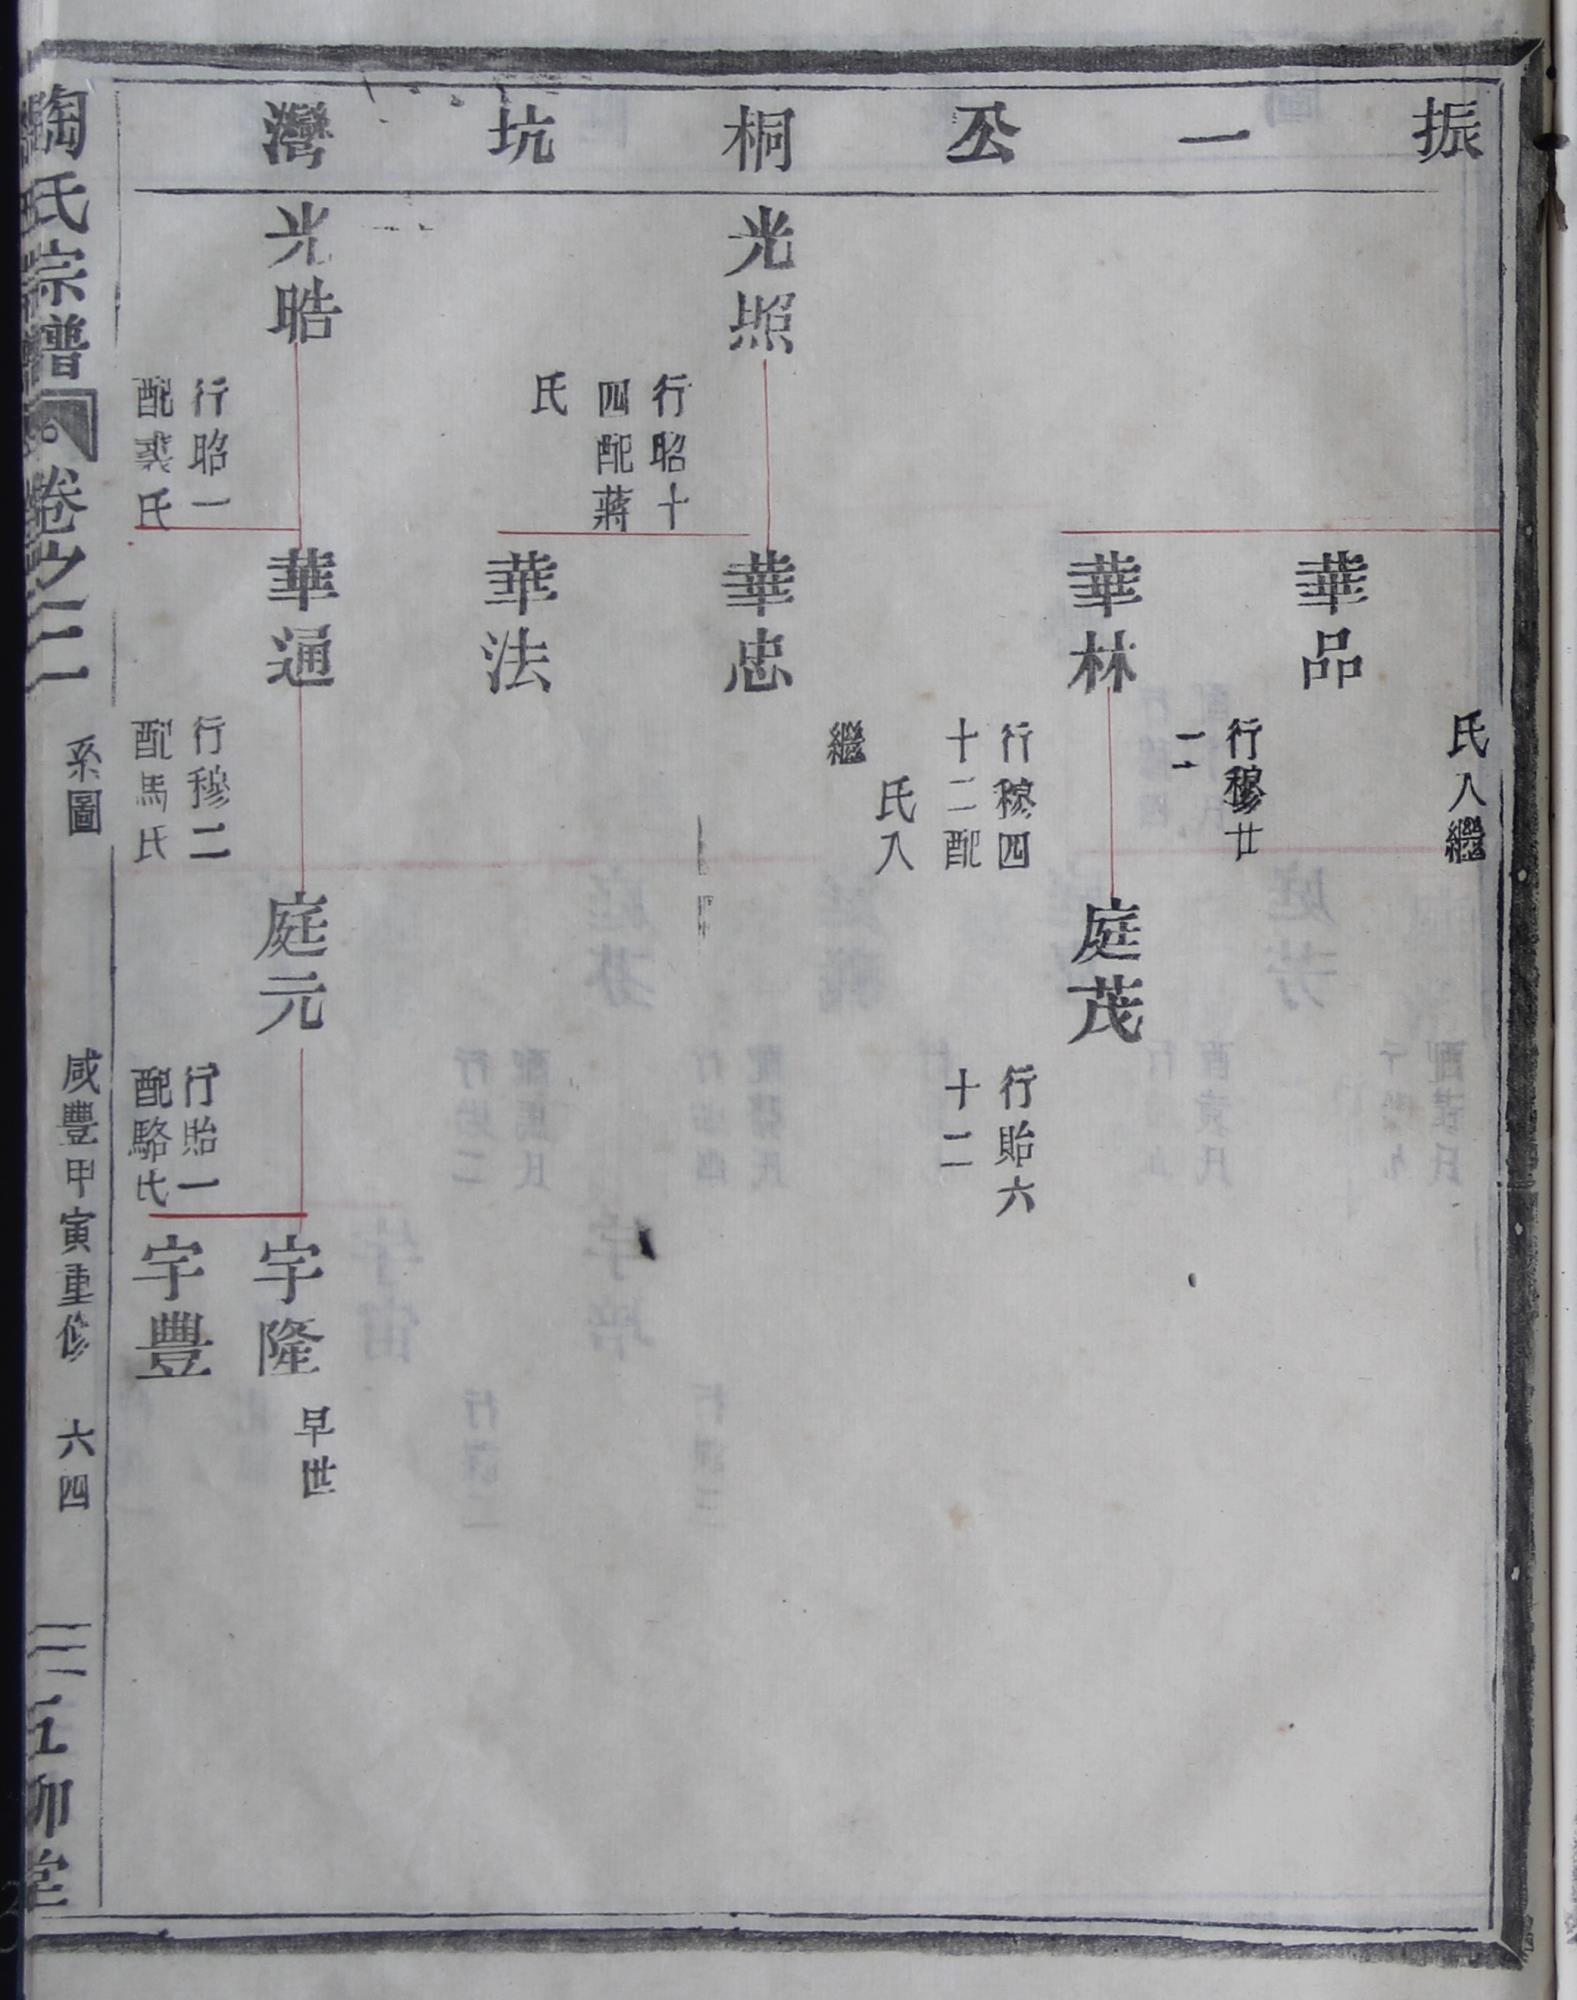 振一公桐坑灣
光照
行昭十
四配蔣
氏
光晧
行昭一
配裘氏
氏入繼
華品
行穆廿
一
華林
行穆四
十二配
氏入
繼
華忠
華法
華通
行穆二
配馬氏
庭茂
行貽六
十二
庭元
行貽一
配駱氏
宇隆
早世
宇豐
陶氏宗譜
卷之二
系圖
咸豐甲寅重修
六四
五柳堂